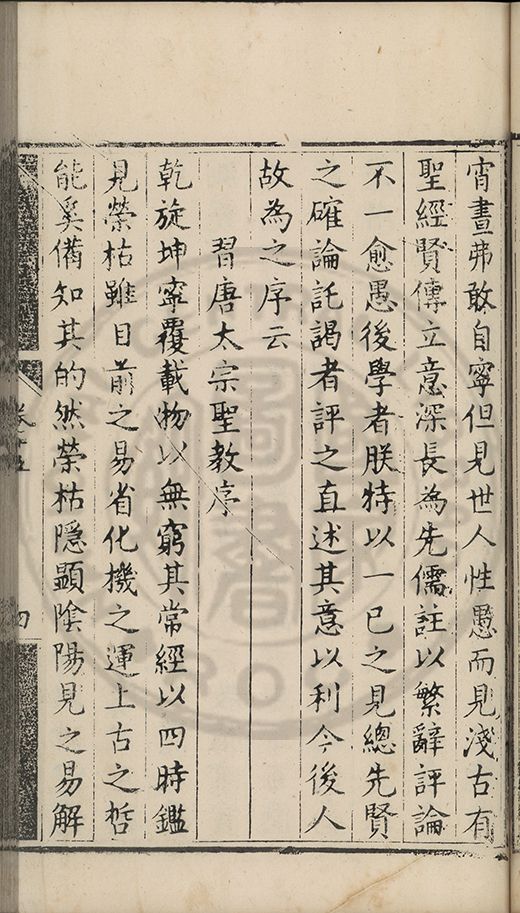 宵晝弗敢自寧但見世人性愚而見淺古有
聖經賢傳立意深長為先儒註以繁辭評論
不一愈愚後學者朕特以一己之見總先賢
之確論託謁者評之直述其意以利今後人
故為之序云
習唐太宗聖教序
乾旋坤寧覆載物以無窮其常經以四時鑑
見榮枯雖目前之易省化機之運上古之哲
能奚備知其的然榮枯隱顯陰陽見之易解
卷十五
四